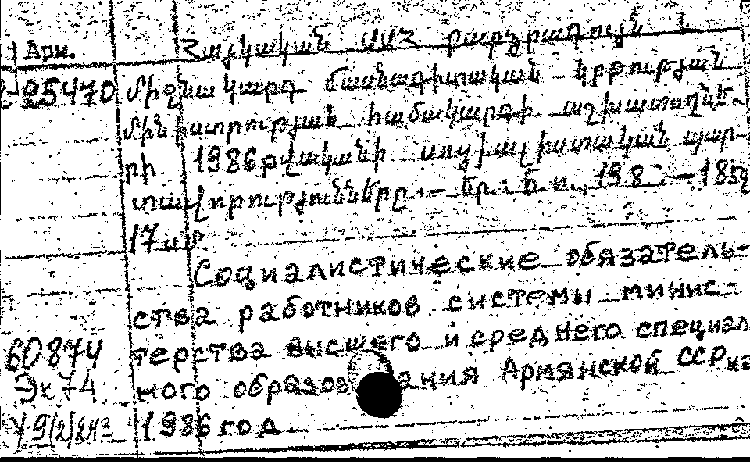 Арм. Հայկական ՍՍՀ բարձրագույն և
25470 միջնակարգ մասնագիտական կրթության
մինիստրության համակարգի աշխատողնե-
րի 1986 թվականի սոցիալիստական պար-
տավորությունները.— Եր.:
17 սմ
Социалистические обязатель-
ства работников системы минис-
60874 терства высшего и среднего специаль-
Эк74 ного образования Армянской ССР на
1986 год.